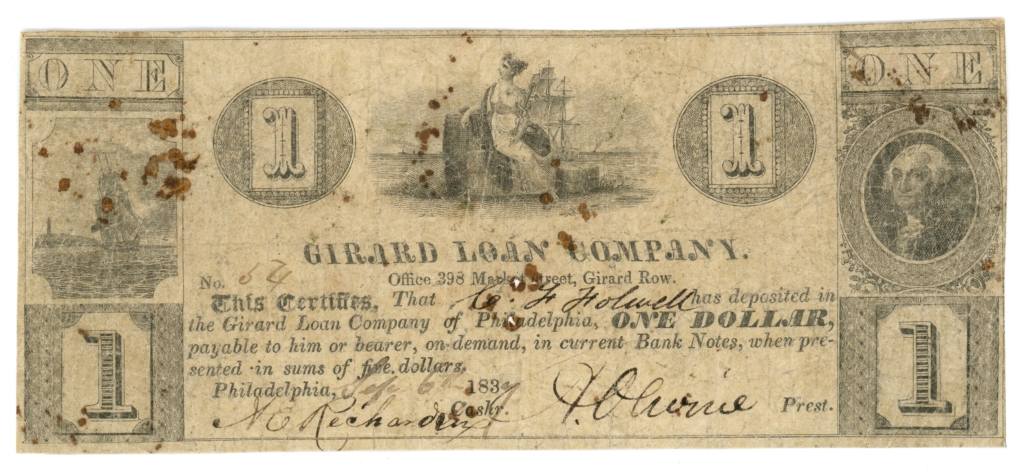 ONE
ONE
1
1
GIRARD LOAN COMPANY.
No. 54
Office 398 Market Street, Girard Row.
This Certifies, That F Folwell has deposited in
the Girard Loan Company of Philadelphia, ONE DOLLAR,
payable to him or bearer, on demand, in current Bank Notes, when pre-
sented in sums of five dollars.
Philadelphia, Sep 6 183
Cashr.
Prest.
1
1